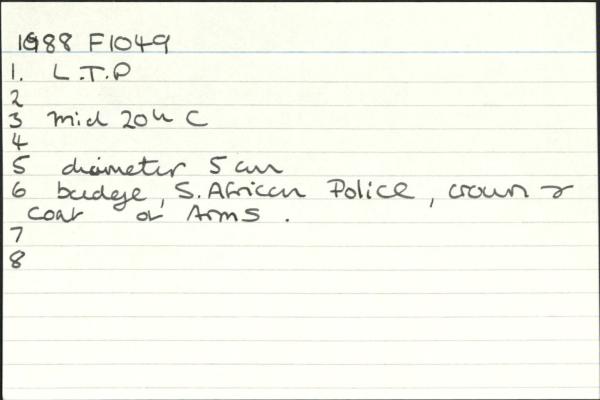 1988 F1049
1. L.T.P
2
3 mid 20th C
4
5 diameter 5 cm
6 badge, S. African Police, crown &
coat of Arms.
7
8